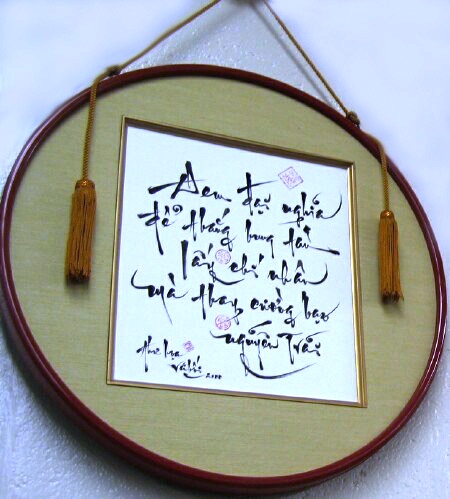 Đem đại nghĩa
để thắng hung tàn
lấy chí nhân
mà thay cường bạo
nguyễn Trãi
2000